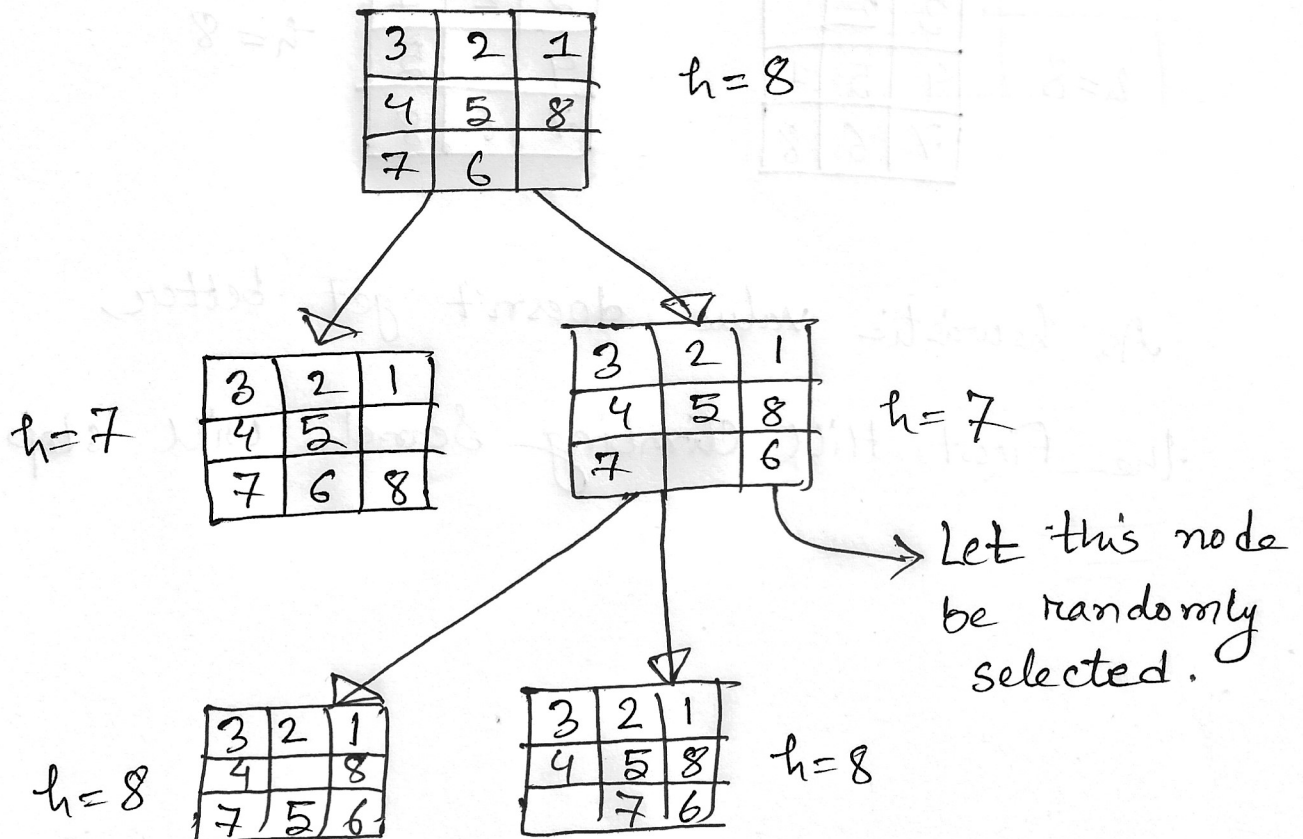 3 2 1
4 5 8
7 6
h = 8
3 2 1
4 5
7 6 8
h = 7
3 2 1
4 5 8
7 6
h = 7
Let this node
be randomly
selected.
3 2 1
4 8
7 5 6
h = 8
3 2 1
4 5 8
7 6
h = 8